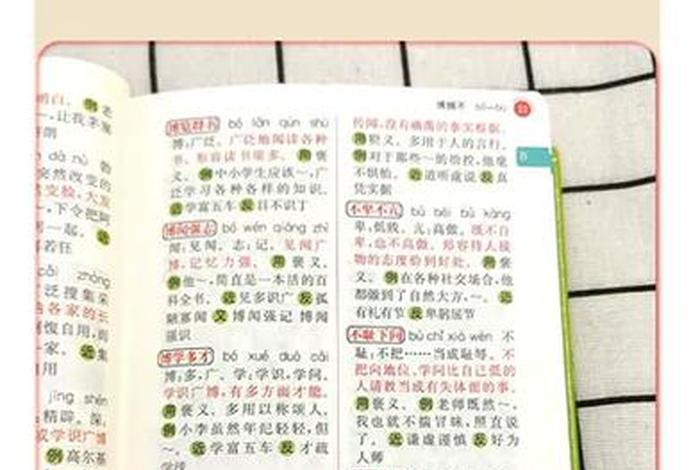 博捕不 bó—bù
明白。 例 老
，让我茅塞
dà nù 勃
突然改变的
变脸，大发
，下令把阿
一起。 近
若狂
cǎi zhòng
泛搜集采
各家的长
愎自用，而
一家。 近 集
用
jīng shēn
精辟。深，
或学识广博
例 高尔基
博览群书 bó lǎn qún shū
博：广泛。广泛地阅读各种
书。形容读书很多。 用 褒
义。 例 中小学生应该～，广
泛学习各种各样的知识。
近 学富五车 反 目不识丁
博闻强志 bó wén qiáng zhì
闻：见闻。志：记。见闻广
博，记忆力强。 用 褒义。
例 他～，简直是一本活的百
科全书。 近 见多识广 反 孤
陋寡闻 又 博闻强记 博闻
强识
博学多才 bó xué duō cái
博：多，广。学：学识，学问。
学识广博，有多方面才能。
用 褒义。多用以称颂人。
例 小李虽然年纪轻轻，但
～。 近 学富五车 反 才疏
学浅
传闻，没有确凿的事实根据。
用 贬义。多用于人的言行。
例 对于那些～的指控，他毫
不惧怕。 近 道听途说 反 真
凭实据
B
不卑不亢 bù bēi bù kàng
卑：低贱。亢：高傲。既不自
卑，也不高傲。形容待人接
物的态度恰到好处。 用 褒
义。 例 在各种社交场合，他
都做到了自然大方，～。 近
有礼有节 反 卑躬屈节
不耻下问 bù chǐ xià wèn 不
耻：不把……当成耻辱。不
把向地位、学问比自己低的
人请教当成有失体面的事。
用 褒义。 例 老师既然～，
我也就不揣冒昧，照直说
了。 近 谦虚谨慎 反 好为
人师